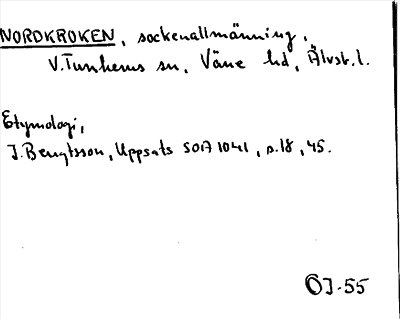 NORDKROKEN, sockenallmänning,
V. Tunhems sn, Väne hd, Älvsb. l.
Etymologi,
J. Bengtsson, Uppsats SOA 1041, s. 18, 45.
ÖJ-55